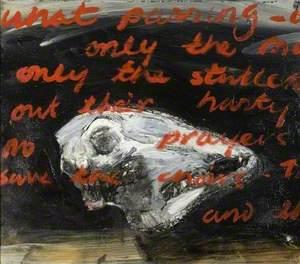 what passing -
only the
only the stutte
out their hasty
no prayers
save the choirs - T
and